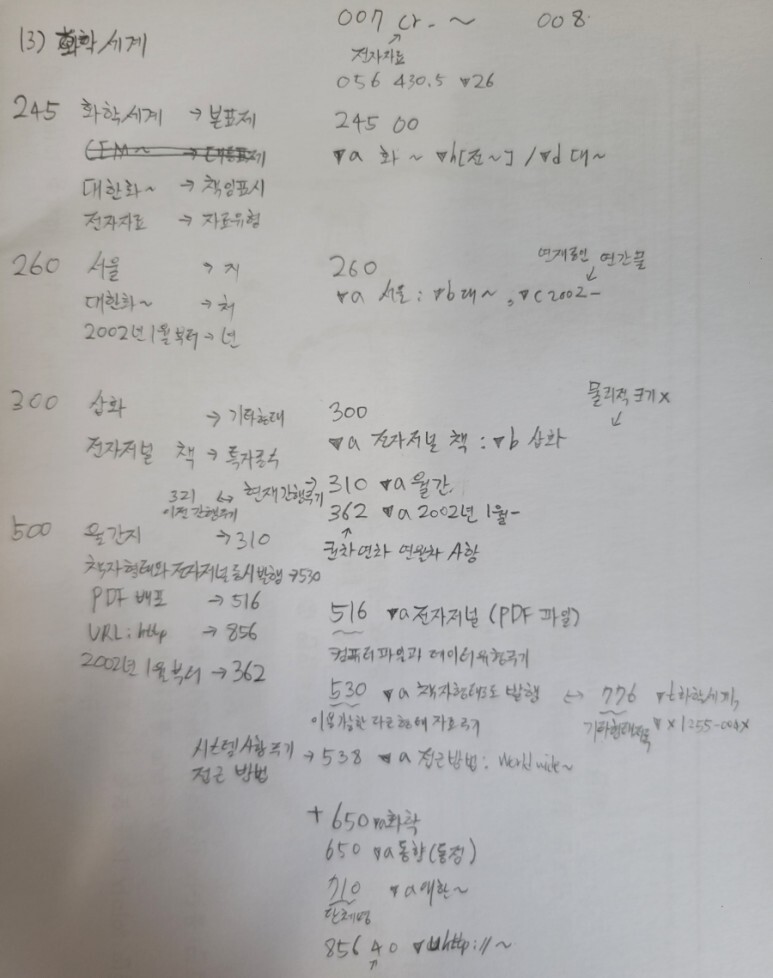 (3) 화학세계
007 cr - ~ 008
전자자료
056 430.5 ▼26
245 화학세계 → 본표제
245 00
▼a 화~ ▼h[전~] / ▼d 대~
대한화~ → 책임표시
전자자료 → 자료유형
260 서울 → 지
260
연재중인 연간물
▼a 서울 : ▼b 대~, ▼c 2002-
대한화~ → 처
2002년 1월부터 → 년
물리적 크기 x
300 삽화 → 기타형태
300
▼a 전자저널 책 : ▼b 삽화
전자저널 책 → 특자종식
321 ↔ 현재간행주기 → 310 ▼a 월간.
이전간행주기
362 ▼a 2002년 1월-
권차연차 사항
500 월간지 → 310
책자형태와 전자저널 동시 발행 → 530
PDF 배포 → 516
URL : http → 856
2002년 1월부터 → 362
516 ▼a 전자저널 (PDF 파일)
컴퓨터파일과 데이터유형주기
530 ▼a 책자형태로도 발행 ↔ 776 ▼t 화학세계,
이용가능한 다른형태 자료주기
기타형태저록 ▼x 1255-004x
시스템사항주기 → 538 ▼a 접근방법 : World wide~
접근 방법
+ 650 ▼a 화학
650 ▼a 통합(동정)
710 ▼a 대한~
단체명
856 40 ▼u http://~